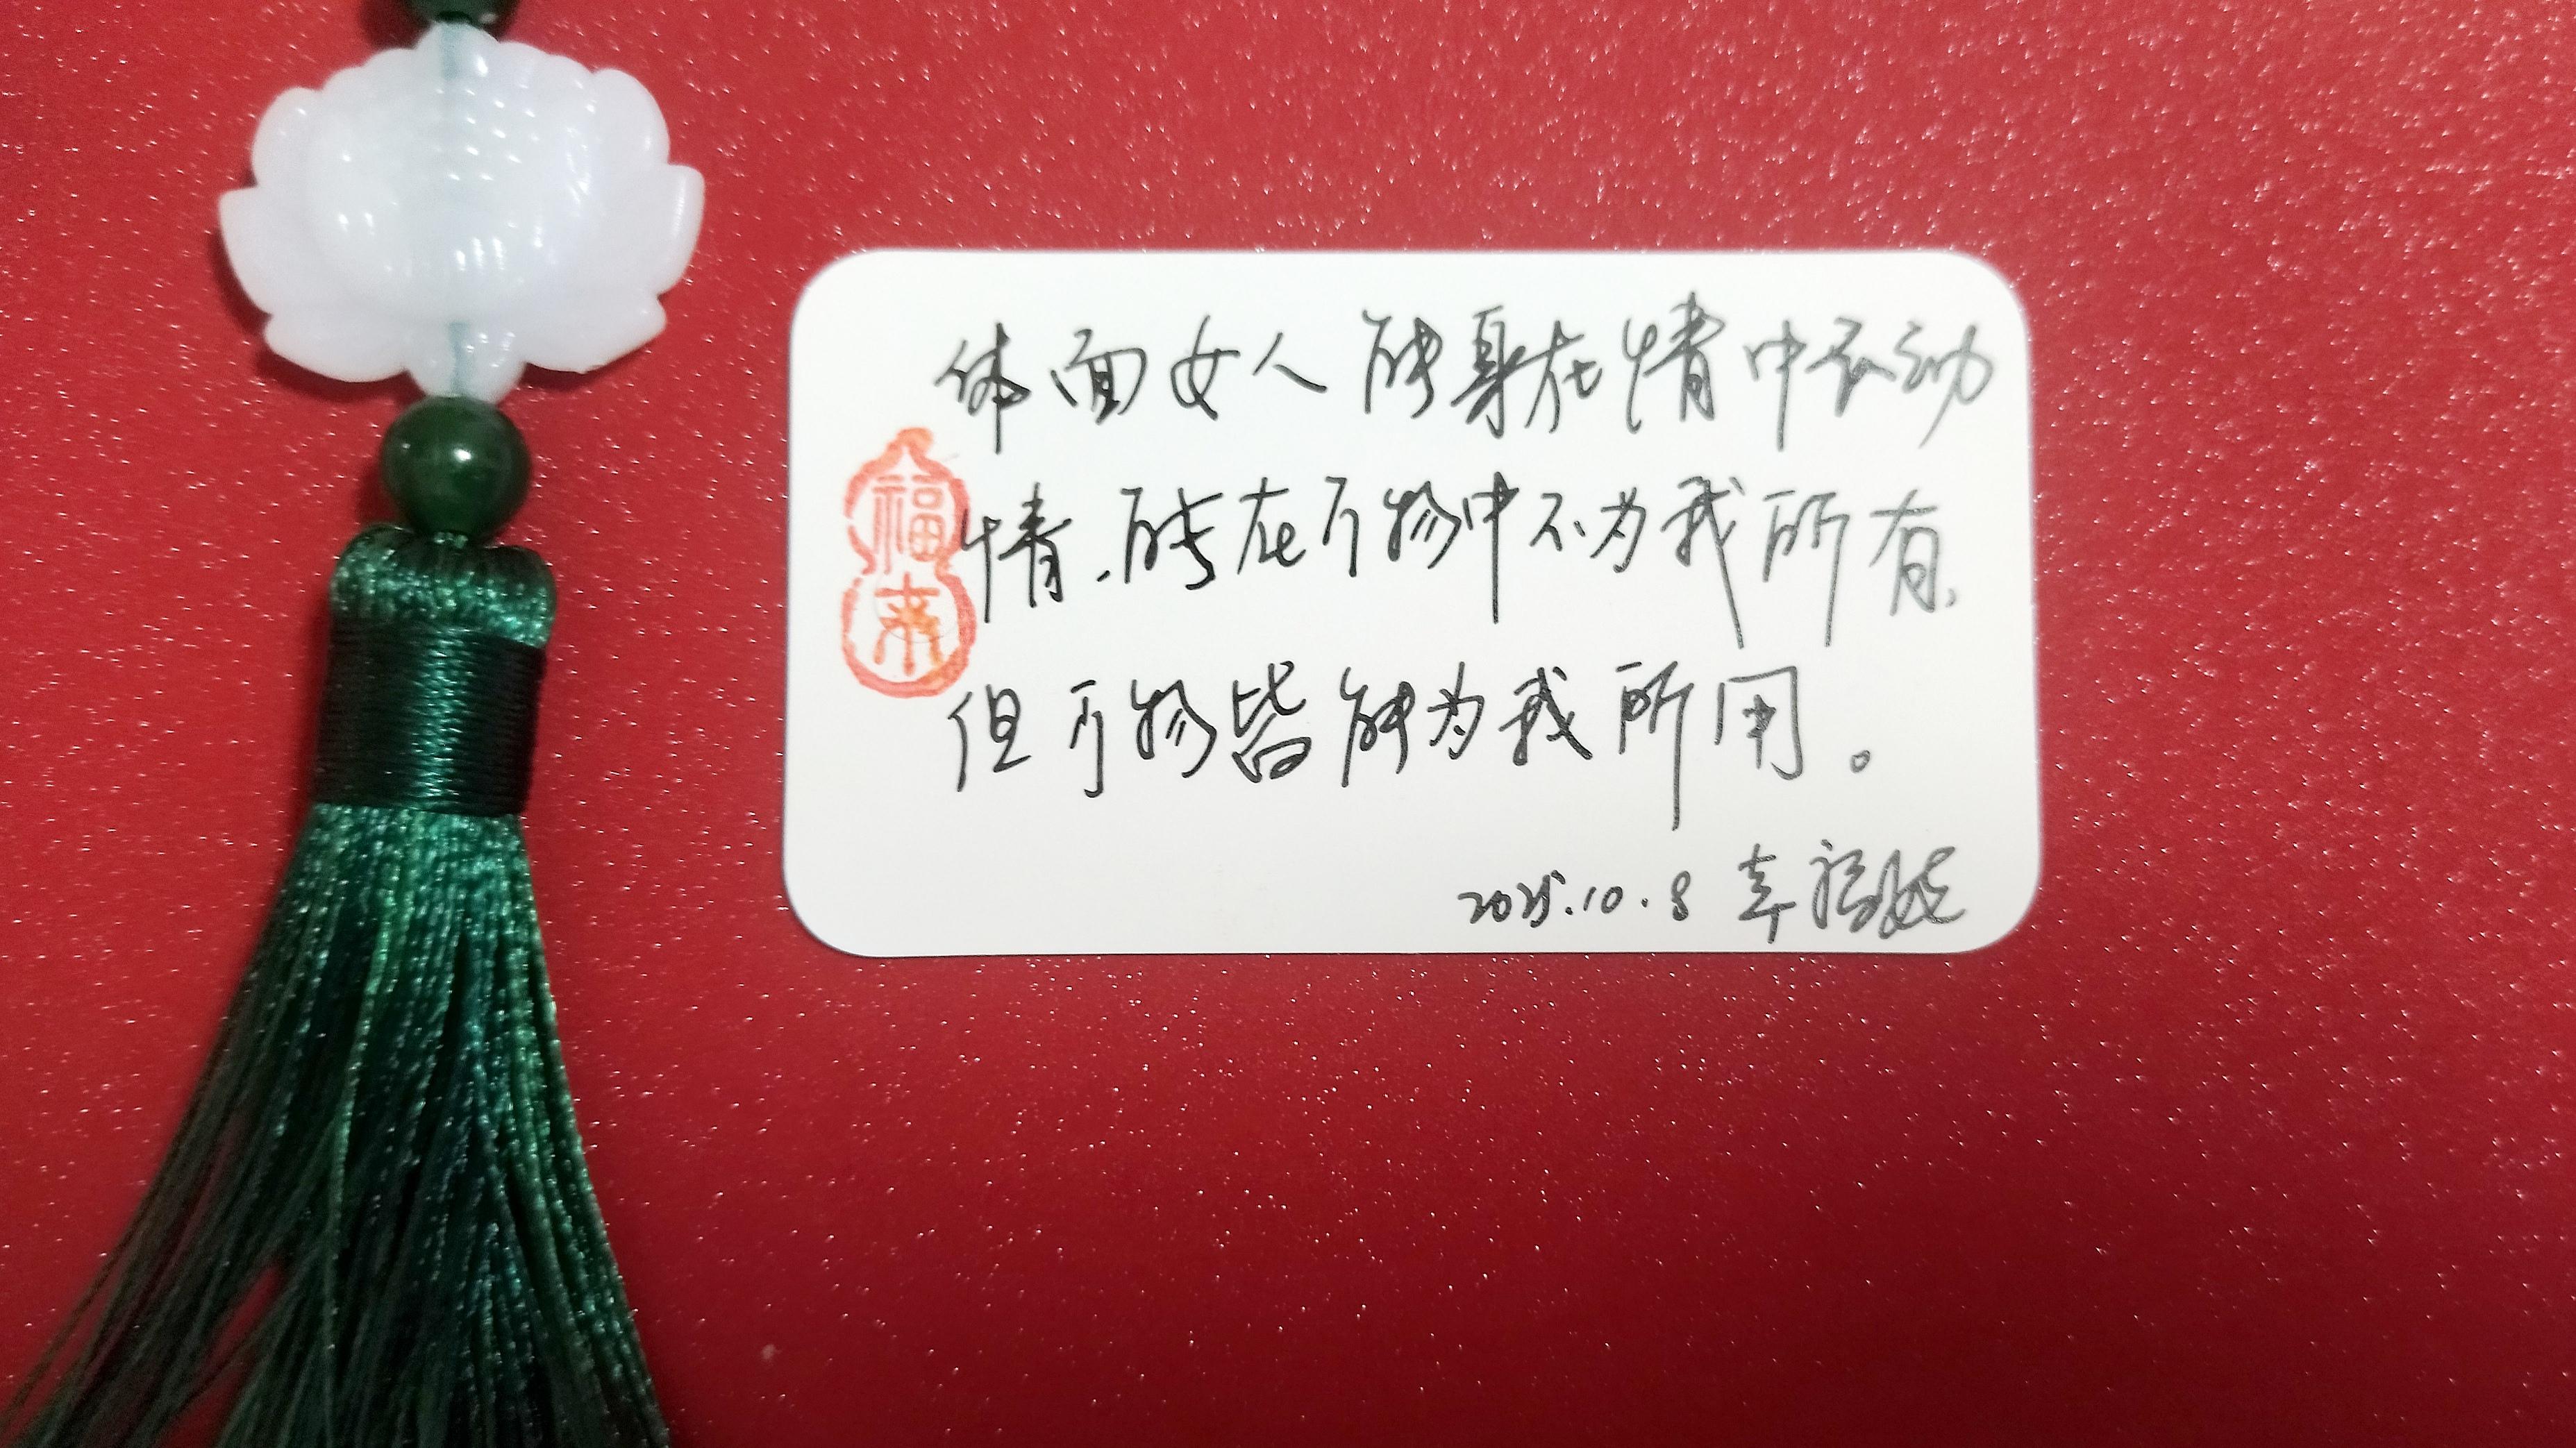 体面女人能身在情中不动
情.能在万物中不为我所有,
但万物皆能为我所用。
2025.10.8 幸福
福来